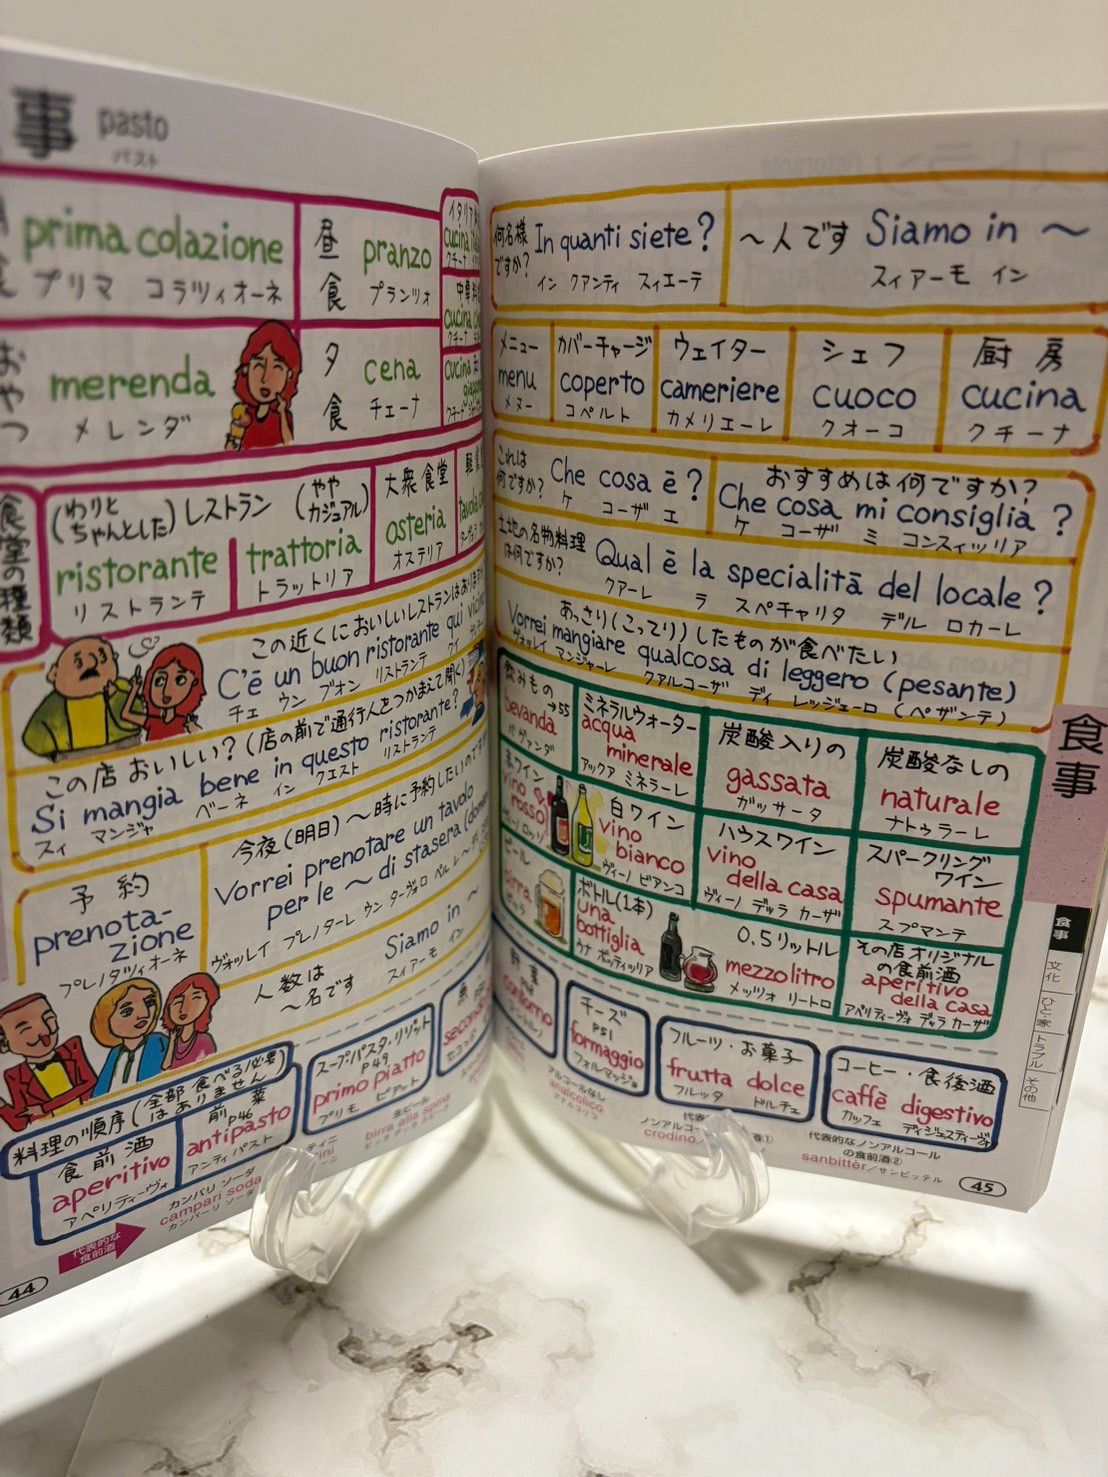 事 pasto
パスト
prima colazione
プリマ コラツィオーネ
昼食
pranzo
プランツォ
おやつ
merenda
メレンダ
夕食
cena
チェーナ
食堂の種類
(わりとちゃんとした) レストラン (ややカジュアル)
ristorante
リストランテ
trattoria
トラットリア
大衆食堂
osteria
オステリア
この近くにおいしいレストランはありますか
C'è un buon ristorante qui
チェ ウン ブオン リストランテ クイ
この店おいしい? (店の前で通行人をつかまえて聞く)
Si mangia bene in questo ristorante?
スィ マンジャ ベーネ イン クエスト リストランテ
予約
prenota-
zione
プレノタツィオーネ
今夜(明日)〜時に予約したいのですが
Vorrei prenotare un tavolo
per le 〜 di stasera
ヴォッレイ プレノターレ ウン ターヴォロ ペル レ 〜
人数は
〜名です
Siamo in 〜
スィアーモ イン
料理の順序 (全部食べる必要はありません)
食前酒
aperitivo
アペリティーヴォ
前菜
P46
antipasto
アンティパスト
スープ・パスタ・リゾット
P49
primo piatto
プリモ ピアット
代表的な
食前酒
カンパリ ソーダ
campari soda
カンパーリ ソーダ
生ビール
birra alla spina
44
何名様ですか?
In quanti siete?
イン クアンティ スィエーテ
〜人です Siamo in 〜
スィアーモ イン
メニュー
menu
メヌー
カバーチャージ
coperto
コペルト
ウェイター
cameriere
カメリエーレ
シェフ
cuoco
クオーコ
厨房
cucina
クチーナ
これは何ですか?
Che cosa ē?
ケ コーザ エ
おすすめは何ですか?
Che cosa mi consiglia ?
ケ コーザ ミ コンスィッリア
土地の名物料理は何ですか?
Qual ē la specialitā del locale ?
クアーレ ラ スペチャリタ デル ロカーレ
あっさり(こってり)したものが食べたい
Vorrei mangiare qualcosa di leggero (pesante)
ヴォッレイ マンジャーレ クアルコーザ ディ レッジェーロ (ペザンテ)
飲みもの
→55
bevanda
ベヴァンダ
ミネラルウォーター
acqua
minerale
アックア ミネラーレ
炭酸入りの
gassata
ガッサータ
炭酸なしの
naturale
ナトゥラーレ
赤ワイン
vino
rosso
白ワイン
vino
bianco
ヴィーノ ビアンコ
ハウスワイン
vino
della casa
ヴィーノ デッラ カーザ
スパークリング
ワイン
spumante
スプマンテ
ビール
birra
ビッラ
ボトル(1本)
una
bottiglia
ウナ ボッティッリア
0.5リットル
mezzo litro
メッツォ リートロ
その店オリジナル
の食前酒
aperitivo
della casa
アペリティーヴォ デッラ カーザ
contorno
チーズ
P51
formaggio
フォルマッジョ
フルーツ・お菓子
frutta dolce
フルッタ ドルチェ
コーヒー・食後酒
caffē digestivo
カッフェ ディジェスティーヴォ
アルコールなし
analcolico
アナルコリコ
crodino
代表的なノンアルコール
の食前酒②
sanbittèr/サンビッテル
45
食事
食事
文化
ひと・家
トラブル
その他